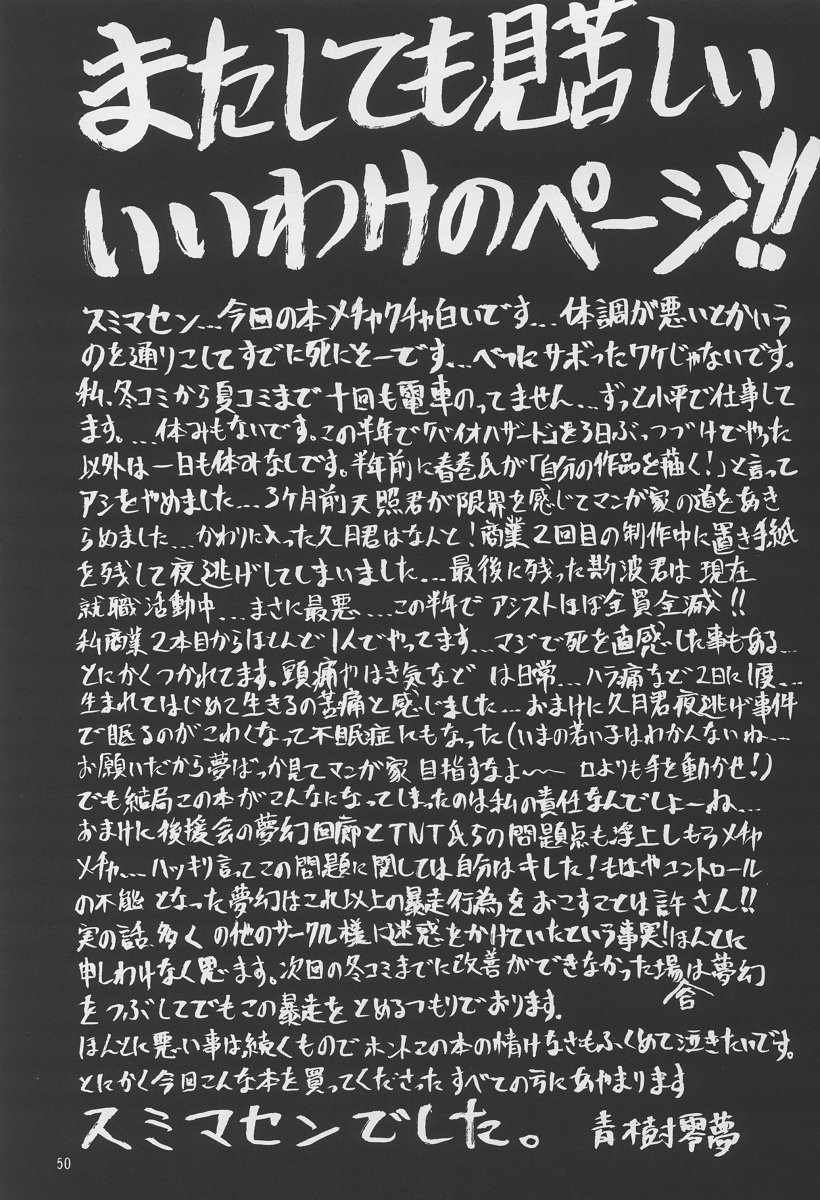 またしても見苦しい
いいわけのページ!!
スミマセン…今回の本メチャクチャ白いです…体調が悪いとかいう
のを通りこしてすでに死にそーです…べつにサボったワケじゃないです。
私、冬コミから夏コミまで十回も電車のってません…ずっと小平で仕事して
ます。…休みもないです。この半年で「バイオハザード」を3日ぶっつづけでやった
以外は一日も休みなしです。半年前に春巻氏が「自分の作品を描く!」と言って
アシをやめました…3ケ月前天照君が限界を感じてマンガ家の道をあき
らめました…かわりに入った久月君はなんと!商業2回目の制作中に置き手紙
を残して夜逃げしてしまいました…最後に残った斯波君は現在
就職活動中…まさに最悪…この半年でアシストほぼ全員全滅!!
私商業2本目からほとんど1人でやってます…マジで死を直感した事もある…
とにかくつかれてます。頭痛やはき気などは日常…ハラ痛など2日に1度…
生まれてはじめて生きるの苦痛と感じました…おまけに久月君夜逃げ事件
で眠るのがこわくなって不眠症にもなった(いまの若い子はわかんないね…
お願いだから夢ばっか見てマンガ家目指すなよ〜 口よりも手を動かせ!)
でも結局この本がこんなになってしまったのは私の責任なんでしょーね…
おまけに後援会の夢幻回廊とTNT氏らの問題点も浮上しもうメチャ
メチャ…ハッキリ言ってこの問題に関しては自分はキした!もはやコントロール
の不能となった夢幻はこれ以上の暴走行為をおこすことは許さん!!
実の話多くの他のサークル様に迷惑をかけていたという事実!ほんとに
申しわけなく思います。次回の冬コミまでに改善ができなかった場合は夢幻
をつぶしてでもこの暴走をとめるつもりでおります。
ほんとに悪い事は続くものでホントこの本の情けなさもふくめて泣きたいです。
とにかく今回こんな本を買ってくださったすべての方にあやまります
スミマセンでした。 青樹零夢
50